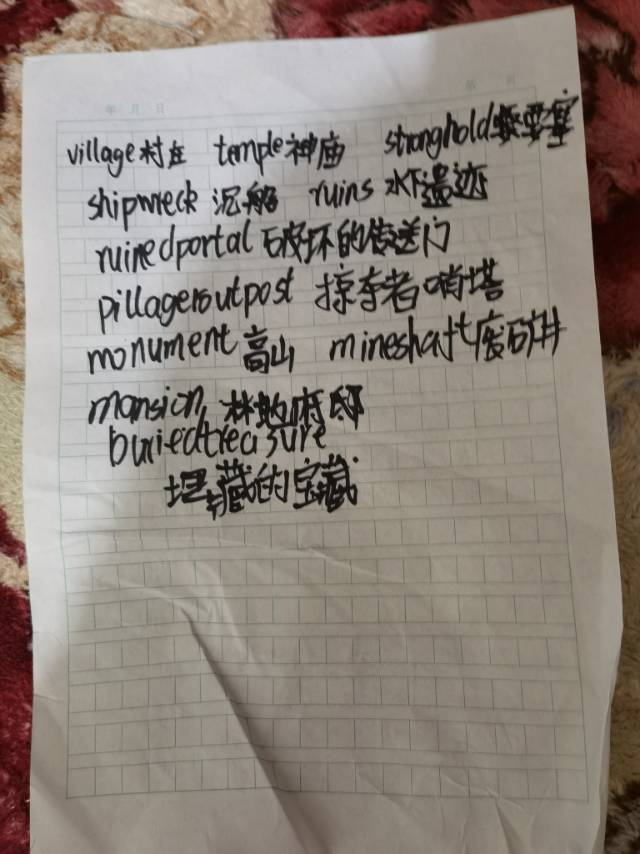 年 月 日
village 村庄 temple 神庙 stronghold 要塞
shipwreck 沉船 ruins 水下遗迹
ruinedportal 破坏的传送门
pillageroutpost 掠夺者哨塔
monument 高山 mineshaft 废矿井
mansion 林地府邸
buriedtreasure
埋藏的宝藏